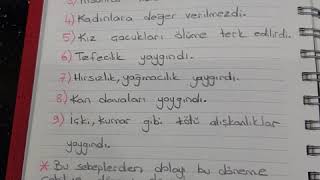 4) Kadınlara değer verilmezdi.
5) Kız çocukları ölüme terk edilirdi.
6) Tefecilik yaygındı.
7) Hırsızlık, yağmacılık yaygındı.
8) Kan davaları yaygındı.
9) İçki, kumar gibi kötü alışkanlıklar
yaygındı.
* Bu sebeplerden dolayı bu döneme